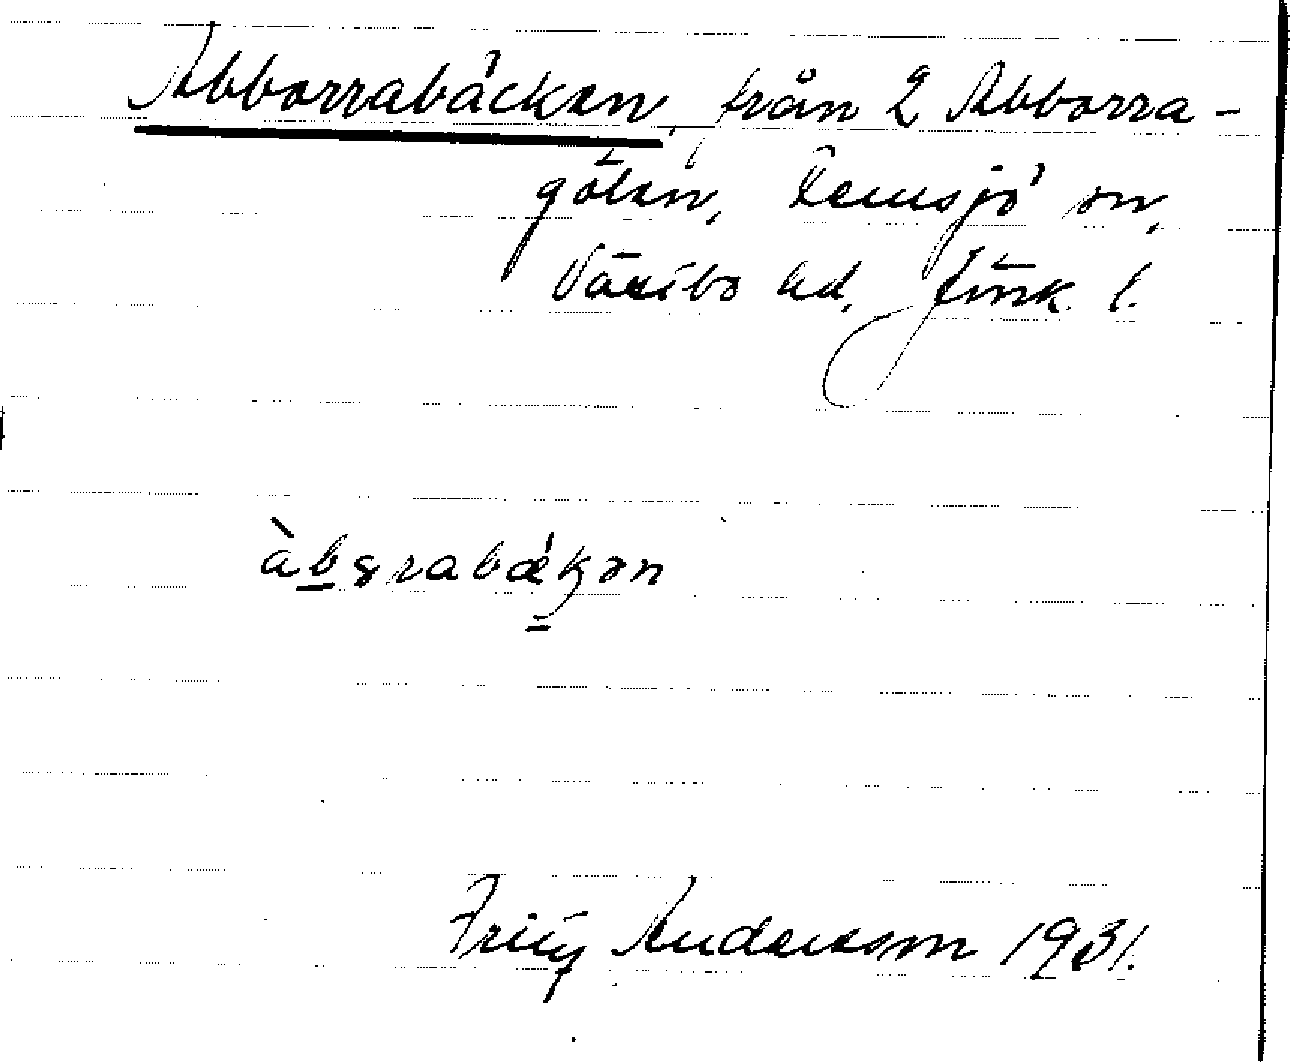 Abborrabäcken, från 2 Abborra-
göten, Femsjö sn,
Västbo hd, Jönk. l.
àbs̨rabǽkən
Fritz Andersson 1931.